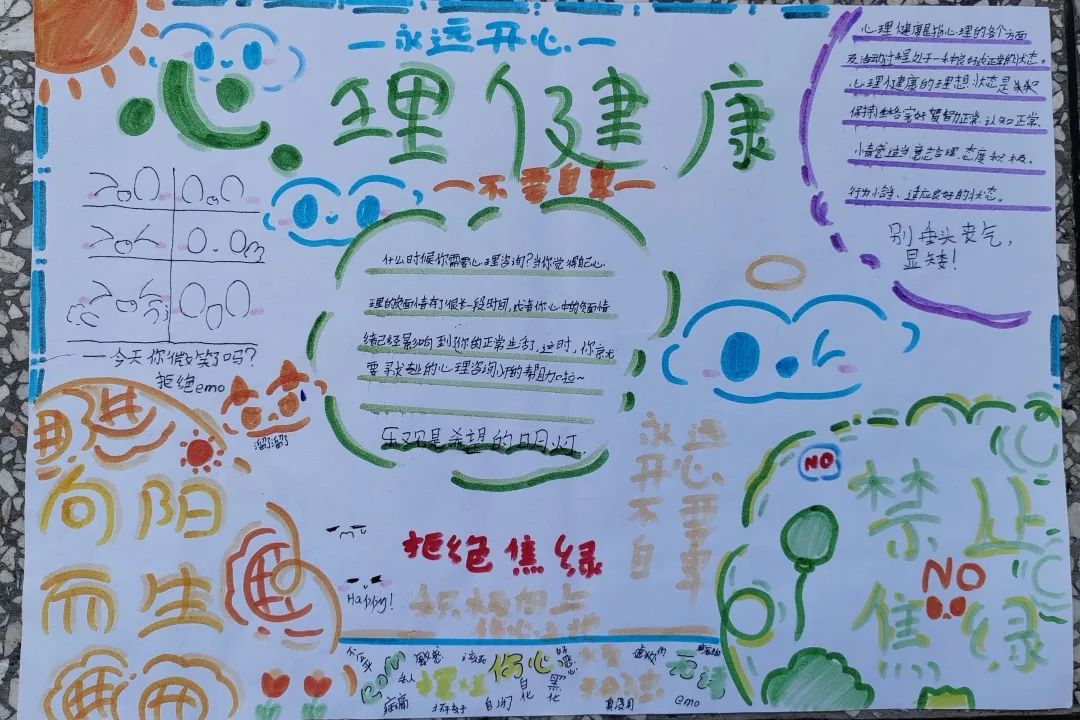 永远开心
心理健康
不要自卑
心理健康是指心理的各个方面
及活动过程处于一种良好或正常的状态。
心理健康的理想状态是
保持性格完好智力正常、认知正常、
情感适当、意志合理、态度积极、
行为恰当、适应良好的状态。
别垂头丧气，
显矮！
什么时候你需要心理咨询?当你觉得自己心
理的负面情有了很长一段时间,或者你心中的负面情
绪已经影响到你的正常生活,这时,你就
要寻找专业的心理咨询师的帮助啦~
乐观是希望的明灯.
一今天你微笑了吗?
拒绝emo
溜了溜了
向阳
而生
永远
开心
不要
自卑
拒绝焦绿
Happy!
积极向上
NO
禁止
NO
焦绿
敏感
你心
黑化
自闭
emo